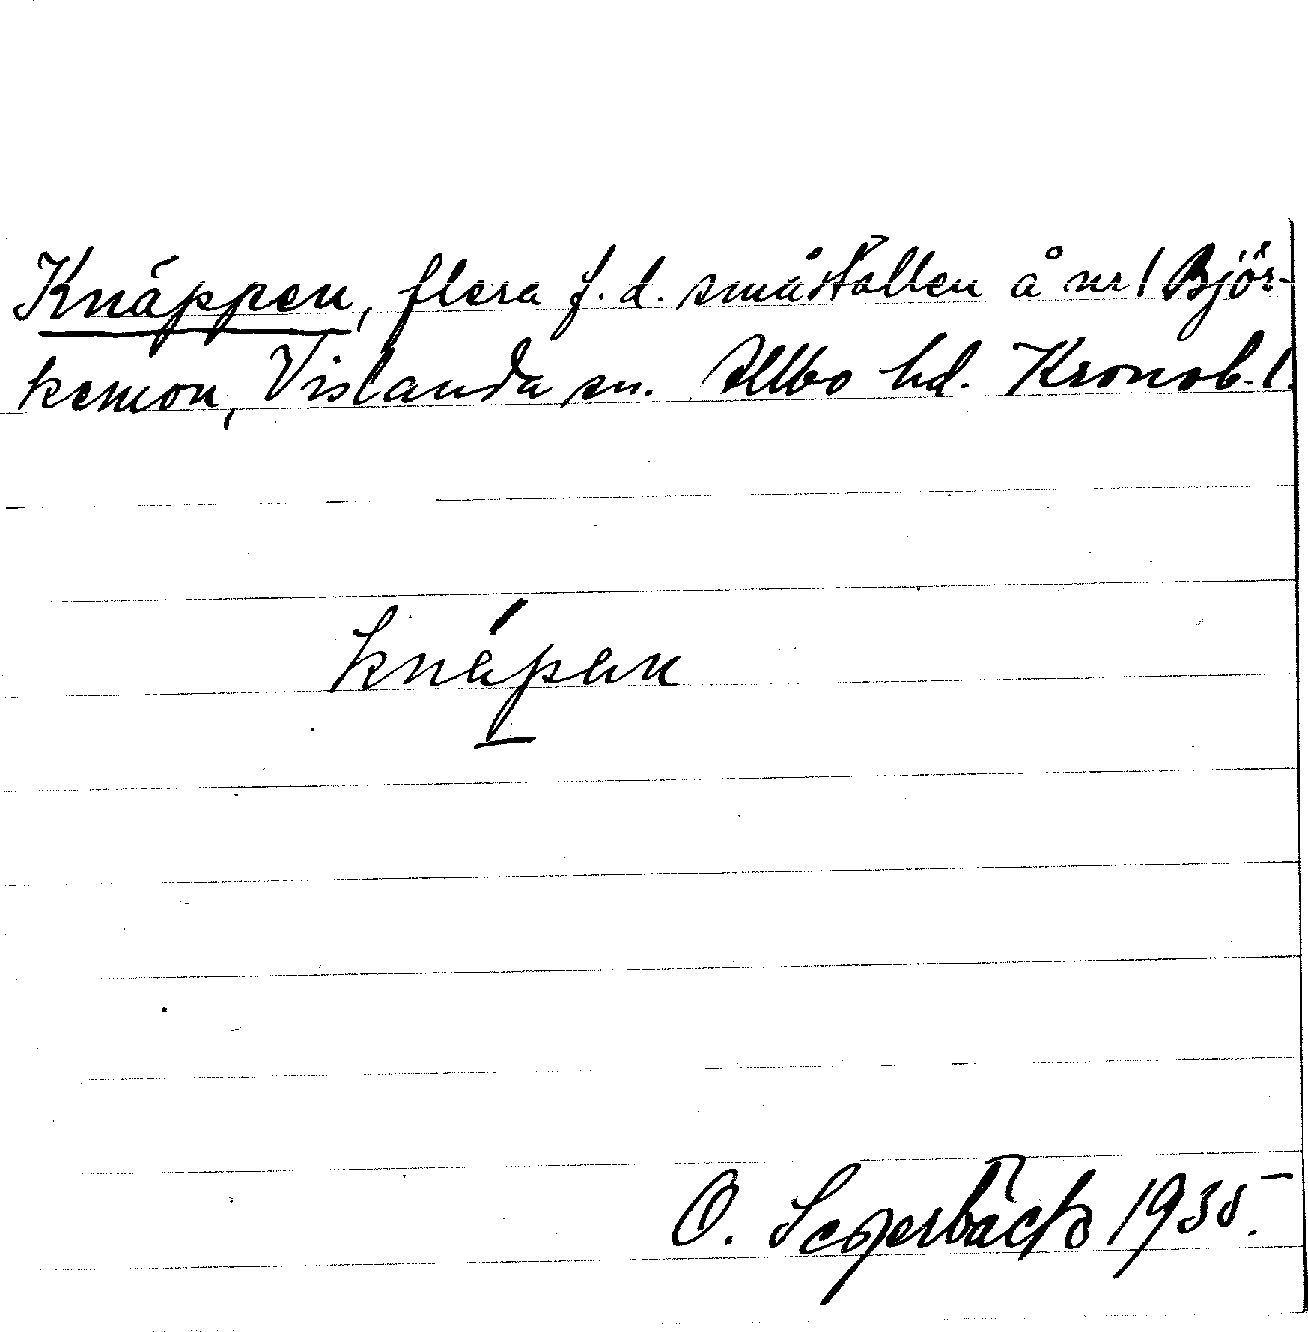 Knäppen, flera f.d. småställen å nr 1 Björ-
kemon, Vislanda sn. Allbo hd. Kronob. l.
knäpen
O. Segerbäck 1935.